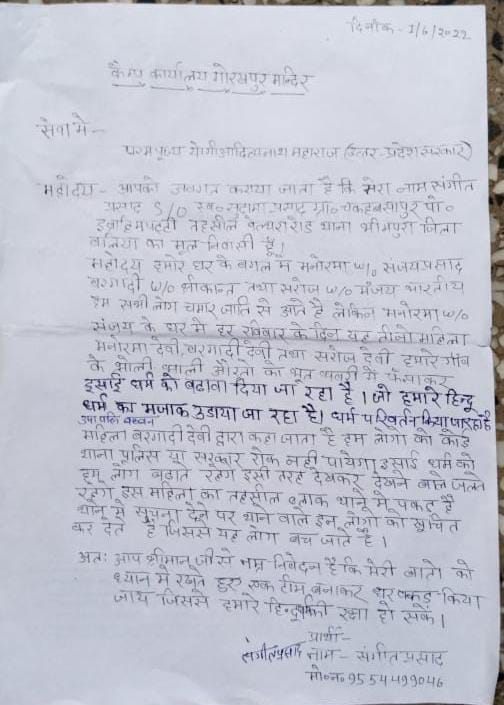 दिनांक - 1/6/2022
कैम्प कार्यालय गोरखपुर मन्दिर
सेवा में -
परम पूज्य योगी आदित्यनाथ महाराज (उत्तर-प्रदेश सरकार)
महोदय - आपको अवगत कराया जाता है कि मेरा नाम संगीत
प्रसाद S/O स्व० सुदामा प्रसाद ग्रा० चकहबसापुर पो०
इब्राहिमपट्टी तहसील बेल्थरा रोड थाना भीमपुरा जिला
बलिया का मूल निवासी हूँ।
महोदय हमारे घर के बगल में मनोरमा w/o संजय प्रसाद
बरगादी w/o श्रीकान्त तथा सरोज w/o मंजय भारतीय
हम सभी लोग चमार जाति से आते है लेकिन मनोरमा w/o
संजय के घर में हर रविवार के दिन यह तीनो महिला
मनोरमा देवी, बरगादी देवी तथा सरोज देवी हमारे गाँव
के भोली भाली औरतो का भूत में फँसाकर
इसाई धर्म को बढावा दिया जा रहा है। जो हमारे हिन्दू
धर्म का मजाक उडाया जा रहा है। धर्म परिवर्तन किया जा रहा है
महिला बरगादी देवी द्वारा कहा जाता है हम लोगो को कोई
थाना पुलिस या सरकार रोक नही पायेगा इसाई धर्म को
हम लोग बढाते रहेगे इसी तरह देखकर देखने वाले जलते
रहेगे इस महिला का तहसील ब्लाक थाने में पकड है
थाने में सूचना देने पर थाने वाले इन लोगो को सूचित
कर देते है जिससे यह लोग बच जाते है।
अतः आप श्रीमान जी से नम्र निवेदन है कि मेरी बातो को
ध्यान में रखते हुए एक टीम बनाकर धर पकड किया
जाय जिससे हमारे हिन्दू धर्म की रक्षा हो सके।
प्रार्थी -
संगीत प्रसाद नाम - संगीत प्रसाद
मो० न० 9554499046